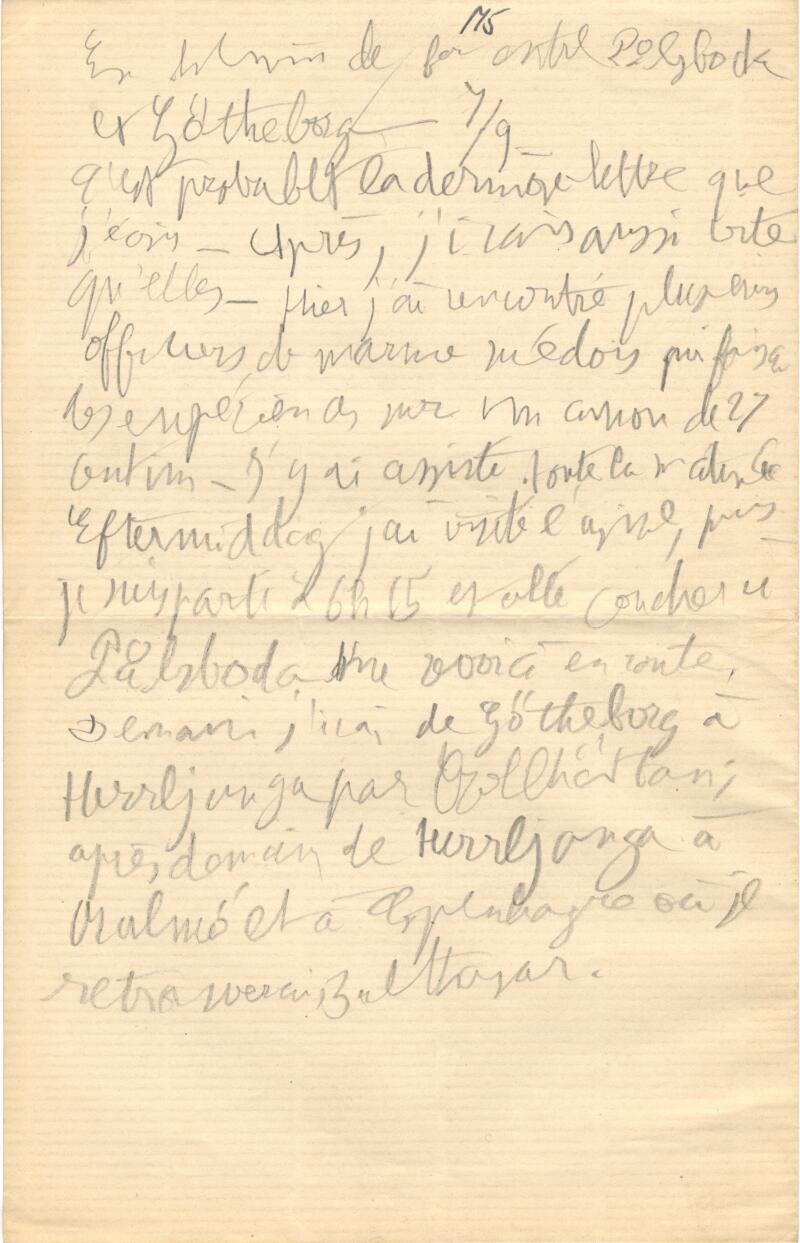 175
En chemin de fer entre Pålsboda
et Götheborg — 7/9
C'est probablt la dernière lettre que
j'écris — Après, j'irais aussi vite
qu'elles — Hier j'ai rencontré plusieurs
officiers de marine suédois qui faisa
des expériences sur un canon de 27
centim — J'y ai assisté toute la matinée
Eftermiddag j'ai visité l'usine, puis
je suis parti à 6h 15 et allé coucher à
Pålsboda. Me revoici en route.
Demain j'irai de Götheborg à
Herrljunga par Trollhättan;
après demain de Herrljunga à
Malmö et à Copenhague où je
retrouverai Balthazar.